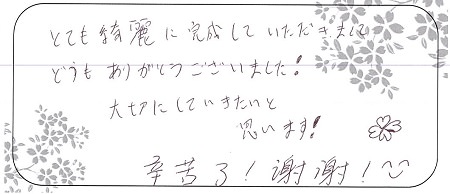 とても綺麗に完成していただきまして
どうもありがとうございました!
大切にしていきたいと
思います!
辛苦了!謝謝!